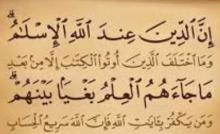 إِنَّ ٱلدِّينَ عِندَ ٱللَّهِ ٱلْإِسْلَٰمُ ۗ
وَمَا ٱخْتَلَفَ ٱلَّذِينَ أُوتُوا۟ ٱلْكِتَٰبَ إِلَّا مِنۢ بَعْدِ
مَا جَآءَهُمُ ٱلْعِلْمُ بَغْيًۢا بَيْنَهُمْ ۗ
وَمَن يَكْفُرْ بِـَٔايَٰتِ ٱللَّهِ فَإِنَّ ٱللَّهَ سَرِيعُ ٱلْحِسَابِ